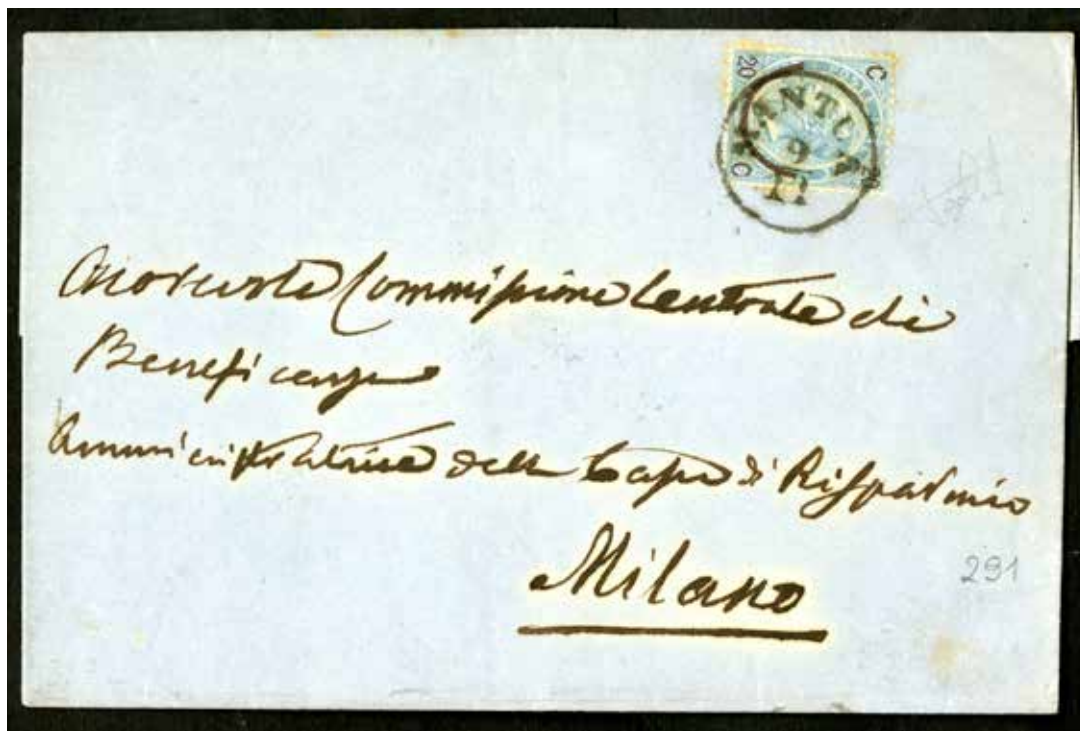 C 20
20 C
MANTOVA
9
11
Commissione Centrale di
Beneficenza
Amministratrice della Cassa di Risparmio
Milano
291